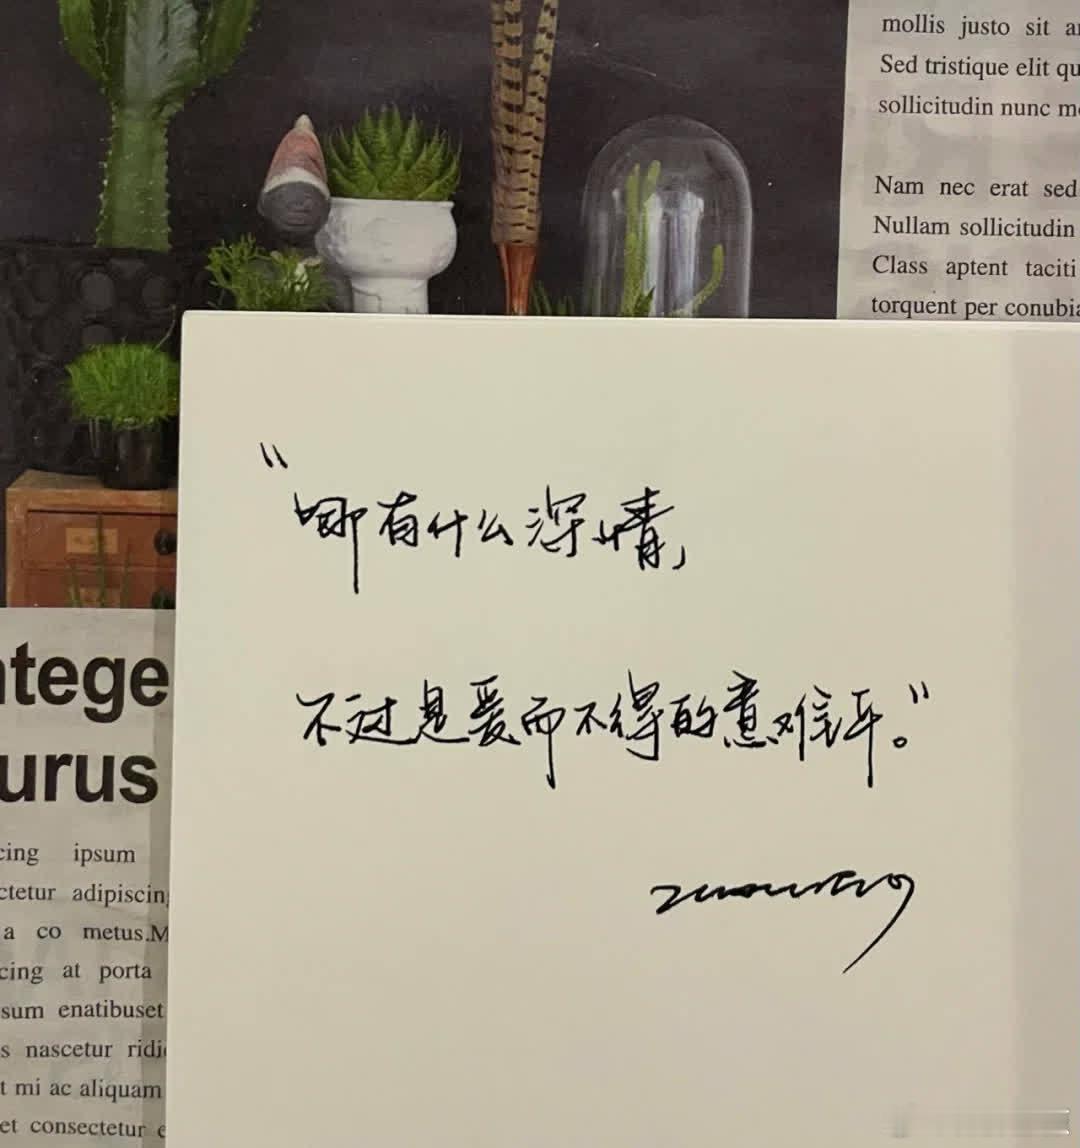 mollis justo sit
Sed tristique elit
sollicitudin nunc
Nam nec erat sed
Nullam sollicitudin
Class aptent taciti
torquent per conubia
“哪有什么深情,
不过是爱而不得的意难平。”
ntege
urus
cing ipsum
ctetur adipiscing
a co metus.M
cing at porta
sum enatibuset
s nascetur ridi
t mi ac aliquam
et consectetur e